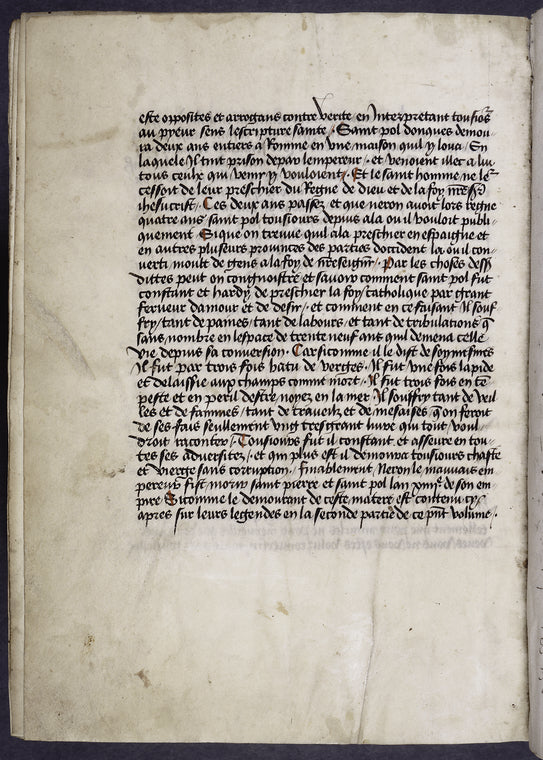 este opposites et arrogans contre verite en Interpretant tousiõs
au pyeur sens lescripture sainte. Saint pol donques demou
ra deux ans entiers a Romme en vne maison quil y loua. En
laquele Il tint prison depar lempereur. et venoient illec a lui
tous ceulx qui venir y vouloient. Et le saint homme ne
cessoit de leur preschier du Regne de dieu et de la foy nr̃e sr̃
ihesucrist. Ces deux ans passez et que neron auoit lors regne
quatre ans saint pol tousiours depuis ala ou il vouloit publi
quement. Si que on treuue quil ala preschier en espaigne et
en autres pluseurs prouinces des parties doccident la ou il con
uerti moult de gens a la foy de nr̃e seignr̃. Par les choses dess9
dittes peut on congnoistre et sauoir comment saint pol fut
constant et hardy de preschier la foy catholique par grant
ferueur damour et de desir. et comment en ce faisant Il souf
fry tant de paines tant de labours et tant de tribulations q̃
sans nombre en lespace de trente neuf ans quil demena celle
vie depuis sa conuersion. Car si comme il le dist de soy mesmes
Il fut par trois fois batu de verges. Il fut vne fois lapide
et delaissie aux champs comme mort. Il fut trois fois en tẽ
peste et en peril destre noyez en la mer. Il souffry tant de veil
les et de famines tant de traueilz et de mesaises q̃ on feroit
de ses fais seullement vng tresgrant liure qui tout voul
droit raconter. Tousiours fut il constant et asseure en tou
tes ses aduersitez. et qui plus est il demoura tousiours chaste
et vierge sans corruption. finablement Neron le mauuais em
pereur fist morir saint pierre et saint pol lan xiiije de son em
pire Si comme le demourant de ceste matere est contenu cy
apres sur leurs legendes en la seconde partie de ce pñt volume.